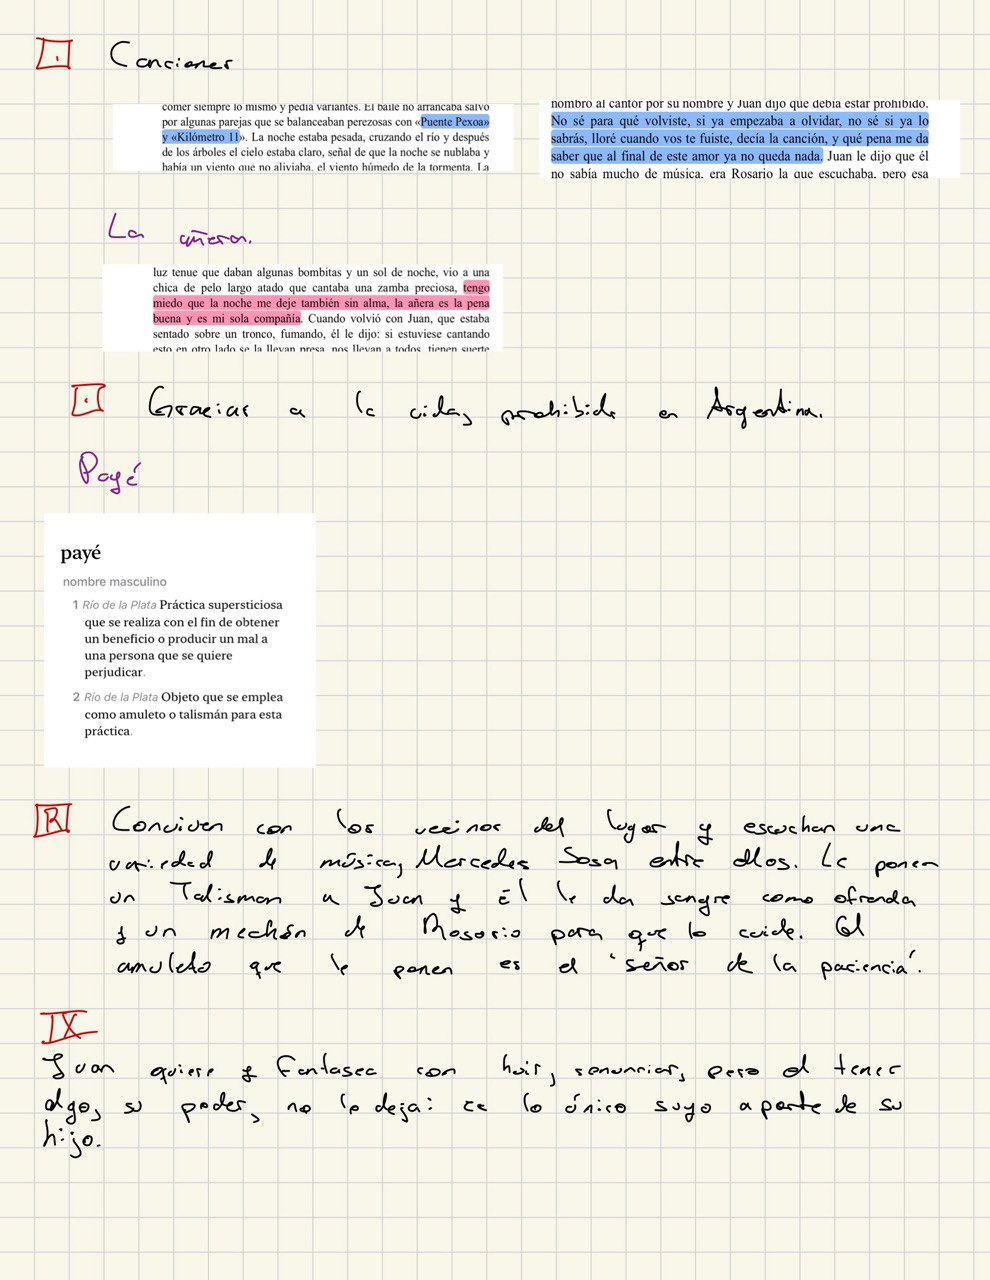 Canciones
comer siempre lo mismo y pedía variantes. El baile no arrancaba salvo
por algunas parejas que se balanceaban perezosas con «Puente Pexoa»
y «Kilómetro 11». La noche estaba pesada, cruzando el río y después
de los árboles el cielo estaba claro, señal de que la noche se nublaba y
había un viento que no aliviaba, el viento húmedo de la tormenta. La
nombró al cantor por su nombre y Juan dijo que debía estar prohibido.
No sé para qué volviste, si ya empezaba a olvidar, no sé si ya lo
sabrás, lloré cuando vos te fuiste, decía la canción, y qué pena me da
saber que al final de este amor ya no queda nada. Juan le dijo que él
no sabía mucho de música, era Rosario la que escuchaba, pero esa
La añera.
luz tenue que daban algunas bombitas y un sol de noche, vio a una
chica de pelo largo atado que cantaba una zamba preciosa, tengo
miedo que la noche me deje también sin alma, la añera es la pena
buena y es mi sola compañía. Cuando volvió con Juan, que estaba
sentado sobre un tronco, fumando, él le dijo: si estuviese cantando
esto en otro lado se la llevan presa, nos llevan a todos, tienen suerte
Gracias a la vida, prohibida en Argentina.
Payé
payé
nombre masculino
1 Río de la Plata Práctica supersticiosa
que se realiza con el fin de obtener
un beneficio o producir un mal a
una persona que se quiere
perjudicar.
2 Río de la Plata Objeto que se emplea
como amuleto o talismán para esta
práctica.
R Conviven con los vecinos del lugar y escuchan una
variedad de música, Mercedes Sosa entre ellos. Le ponen
un Talisman a Juan y Él le da sangre como ofrenda
y un mechón de Rosario para que lo cuide. El
amuleto que le ponen es el 'señor de la paciencia'.
IX
Juan quiere y fantasea con huir, renunciar, pero el tener
algo, su poder, no lo deja: es lo único suyo aparte de su
hijo.